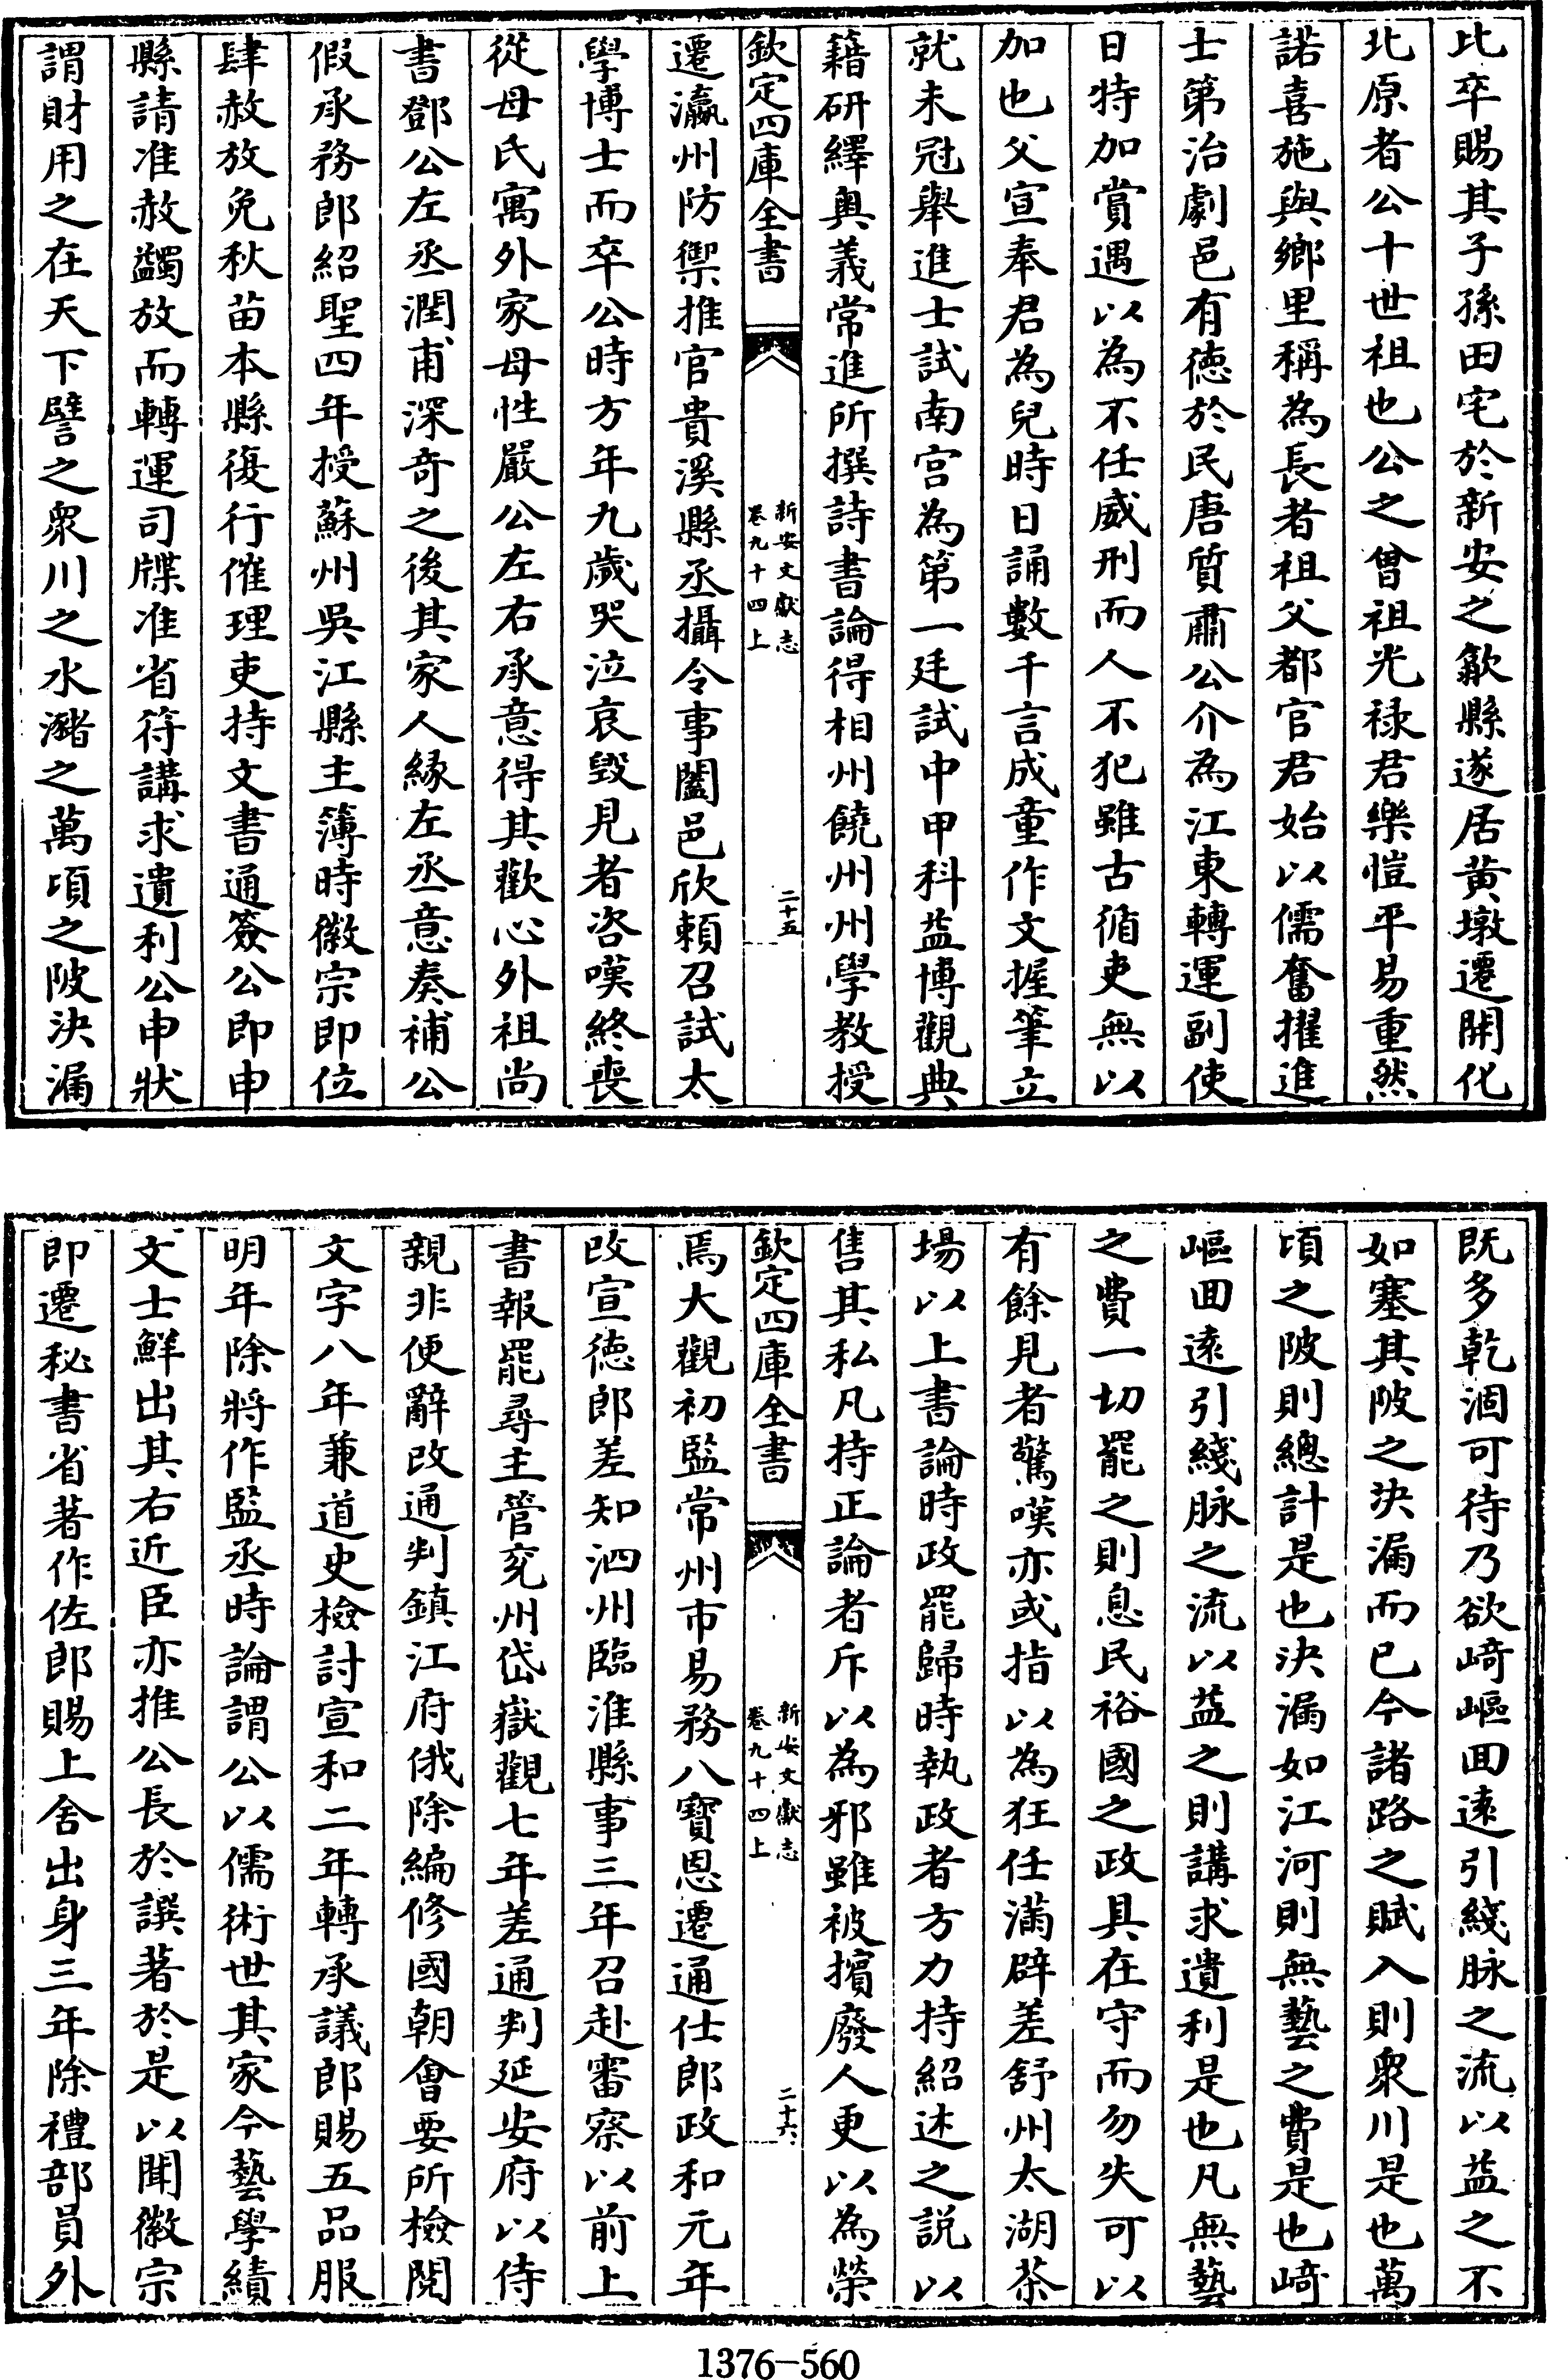 比卒賜其子孫田宅於新安之歙縣遂居黄墩遷開化
北原者公十世祖也公之曾祖光禄君樂愷平易重然
諾喜施與鄉里稱為長者祖父都官君始以儒奮擢進
士第治劇邑有徳於民唐質肅公介為江東轉運副使
日特加賞遇以為不任威刑而人不犯雖古循吏無以
加也父宣奉君為兒時日誦數千言成童作文握筆立
就未冠舉進士試南宫為第一廷試中甲科益博觀典
籍研繹奥義常進所撰詩書論得相州饒州州學教授
欽定四庫全書
新安文獻志
卷九十四上
二十五
遷瀛州防禦推官貴溪縣丞攝令事闔邑欣賴召試太
學博士而卒公時方年九歲哭泣哀毁見者咨嘆終喪
從母氏寓外家母性嚴公左右承意得其歡心外祖尚
書鄧公左丞潤甫深奇之後其家人縁左丞意奏補公
假承務郎紹聖四年授蘇州吳江縣主簿時徽宗即位
肆赦放免秋苗本縣復行催理吏持文書通簽公即申
縣請准赦蠲放而轉運司牒准省符講求遺利公申狀
謂財用之在天下譬之衆川之水瀦之萬頃之陂決漏
既多乾涸可待乃欲﨑嶇囬逺引綫脉之流以益之不
如塞其陂之決漏而已今諸路之賦入則衆川是也萬
頃之陂則總計是也決漏如江河則無藝之費是也﨑
嶇囬逺引綫脉之流以益之則講求遺利是也凡無藝
之費一切罷之則息民裕國之政具在守而勿失可以
有餘見者驚嘆亦或指以為狂任滿辟差舒州太湖茶
場以上書論時政罷歸時執政者方力持紹述之説以
售其私凡持正論者斥以為邪雖被擯廢人更以為榮
欽定四庫全書
新安文獻志
卷九十四上
二十六
焉大觀初監常州市易務八寳恩遷通仕郎政和元年
改宣徳郎差知泗州臨淮縣事三年召赴審察以前上
書報罷尋主管兖州岱嶽觀七年差通判延安府以侍
親非便辭改通判鎮江府俄除編修國朝會要所檢閱
文字八年兼道史檢討宣和二年轉承議郎賜五品服
明年除將作監丞時論謂公以儒術世其家今藝學績
文士鮮出其右近臣亦推公長於譔著於是以聞徽宗
即遷秘書省著作佐郎賜上舍出身三年除禮部員外
1376-560